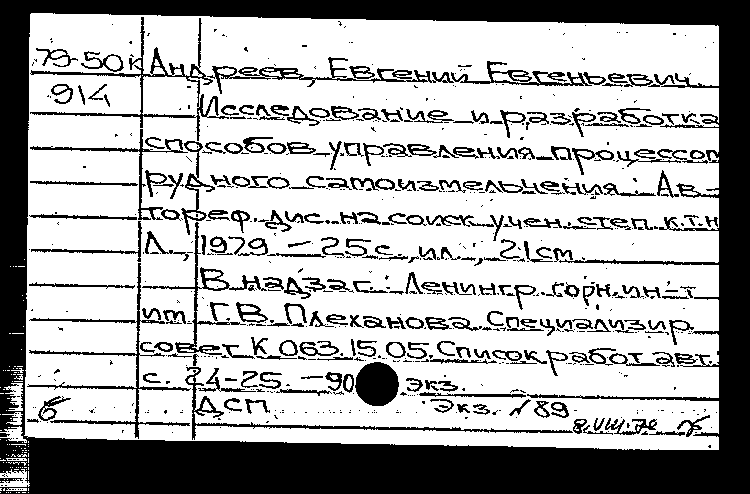 79-50к Андреев, Евгений Евгеньевич.
914 Исследование и разработка
способов управления процессом
рудного самоизмельчения : Ав-
тореф. дис. на соиск. учен. степ. к.т.н
Л., 1979 – 25 с., ил. ; 21 см.
В надзаг. : Ленингр. горн. ин-т
им. Г.В. Плеханова. Специализир.
совет К 063.15.05. Список работ авт.:
с. 24-25. – 90 экз.
б ДСП Экз. №89